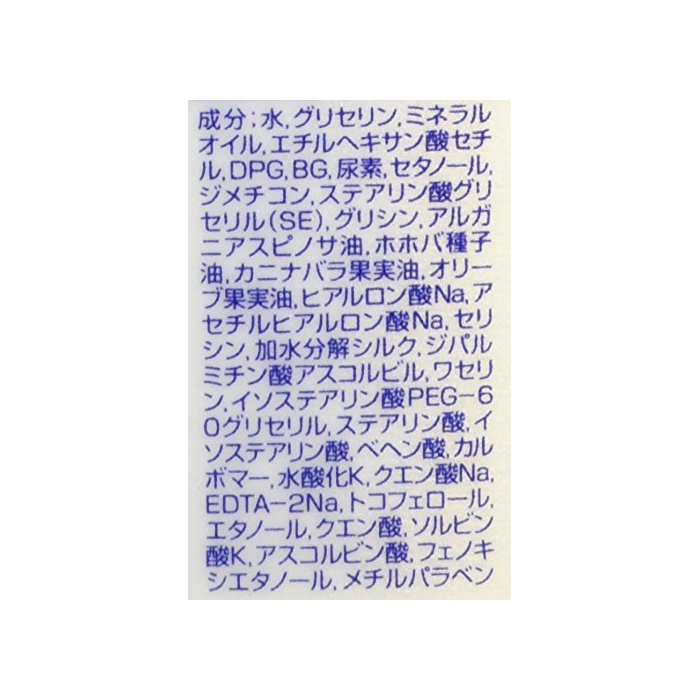 成分；水，グリセリン，ミネラル
オイル，エチルヘキサン酸セチ
ル，DPG，BG，尿素，セタノール，
ジメチコン，ステアリン酸グリ
セリル(SE)，グリシン，アルガ
ニアスピノサ油，ホホバ種子
油，カニナバラ果実油，オリー
ブ果実油，ヒアルロン酸Na，ア
セチルヒアルロン酸Na，セリ
シン，加水分解シルク，ジパル
ミチン酸アスコルビル，ワセリ
ン，イソステアリン酸PEG-6
0グリセリル，ステアリン酸，イ
ソステアリン酸，ベヘン酸，カル
ボマー，水酸化K，クエン酸Na，
EDTA-2Na，トコフェロール，
エタノール，クエン酸，ソルビン
酸K，アスコルビン酸，フェノキ
シエタノール，メチルパラベン